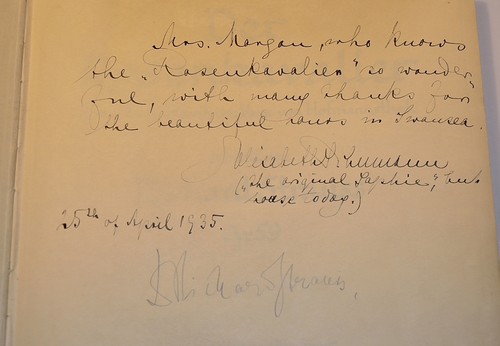 Mrs. Morgan, who knows
the „Rosenkavalier" so wonder-
ful, with many thanks for
the beautiful hours in Swansea.
Elisabeth Schumann
("the original Sophie", but
hoarse today.)
25th of April 1935.
Dr Richard Strauss.